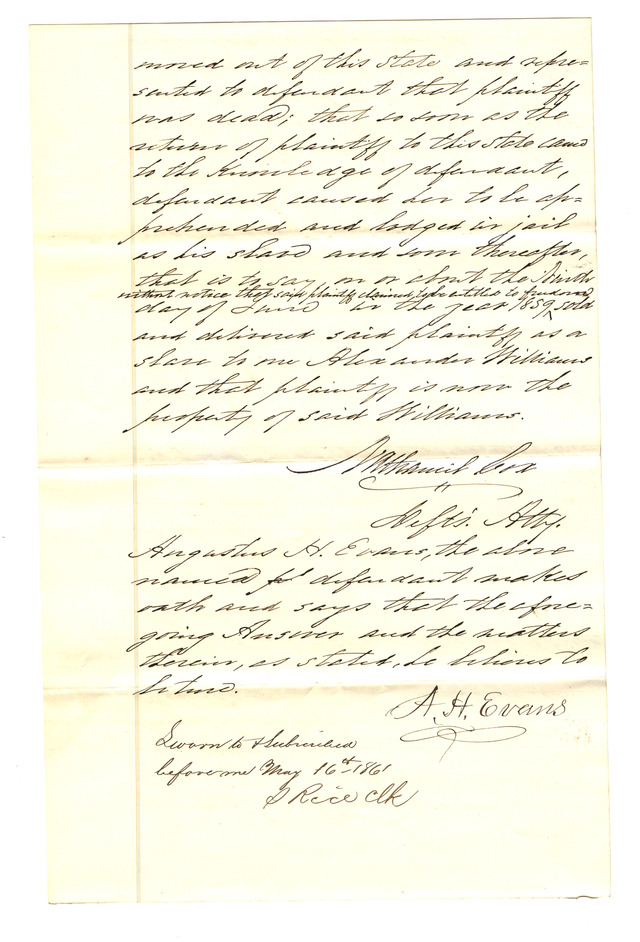 moved out of this State and repre=
sented to defendant that plaintiff
was dead; that so soon as the
return of plaintiff to this State came
to the Knowledge of defendant,
defendant caused her to be ap-
prehended and lodged in jail
as his slave and soon thereafter,
that is to say, on or about the Ninth
without notice that said plaintiff claimed to be entitled to freedom
day of June in the year 1859 ^ sold
and delivered said plaintiff as a
slave to one Alexander Williams
and that plaintiff is now the
property of said Williams.
Nathaniel Cox
Defts. Atty.
Augustus H. Evans, the above
named defendant makes
oath and says that the afore=
going Answer and the matters
therein, as stated, he believes to
be true.
A. H. Evans
Sworn to & Subscribed
before me May 16th 1861
S Rice Clk